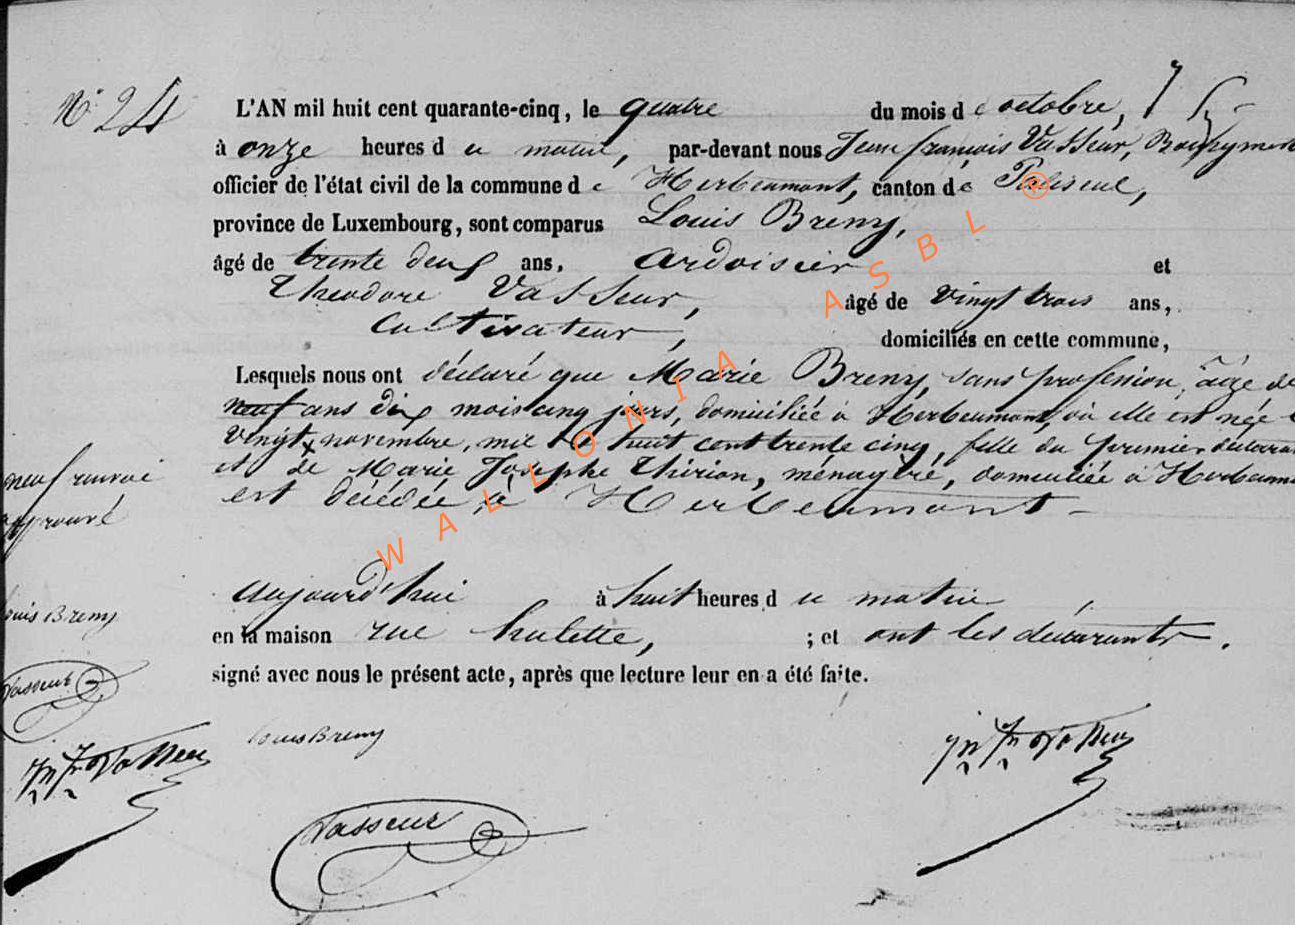 N° 24
L'AN mil huit cent quarante-cinq, le quatre du mois de octobre,
à onze heures du matin, par-devant nous Jean françois Vasseur, Bourgmest
officier de l'état civil de la commune de Herbeumont, canton de Paliseul,
province de Luxembourg, sont comparus Louis Breny,
âgé de trente deux ans, ardoisier et
Theodore Vasseur, âgé de vingt trois ans,
Cultivateur, domiciliés en cette commune,
Lesquels nous ont déclaré que Marie Breny, sans profession, âgée de
neuf ans dix mois cinq jours, domiciliée à Herbeumont, où elle est née
vingt novembre, mil huit cent trente cinq, fille du premier déclarant
et de Marie Josephe Thirion, ménagère, domiciliée à Herbeumont
est décédée, à Herbeumont
neuf renvoi
approuvé
aujourd'hui à huit heures du matin
en la maison rue hulette, ; et ont les déclarants
signé avec nous le présent acte, après que lecture leur en a été faite.
Louis Breny
Vasseur
Jn Fn Vasseur
Louis Breny
Vasseur
Jn Fn Vasseur
WALLONIA ASBL ®